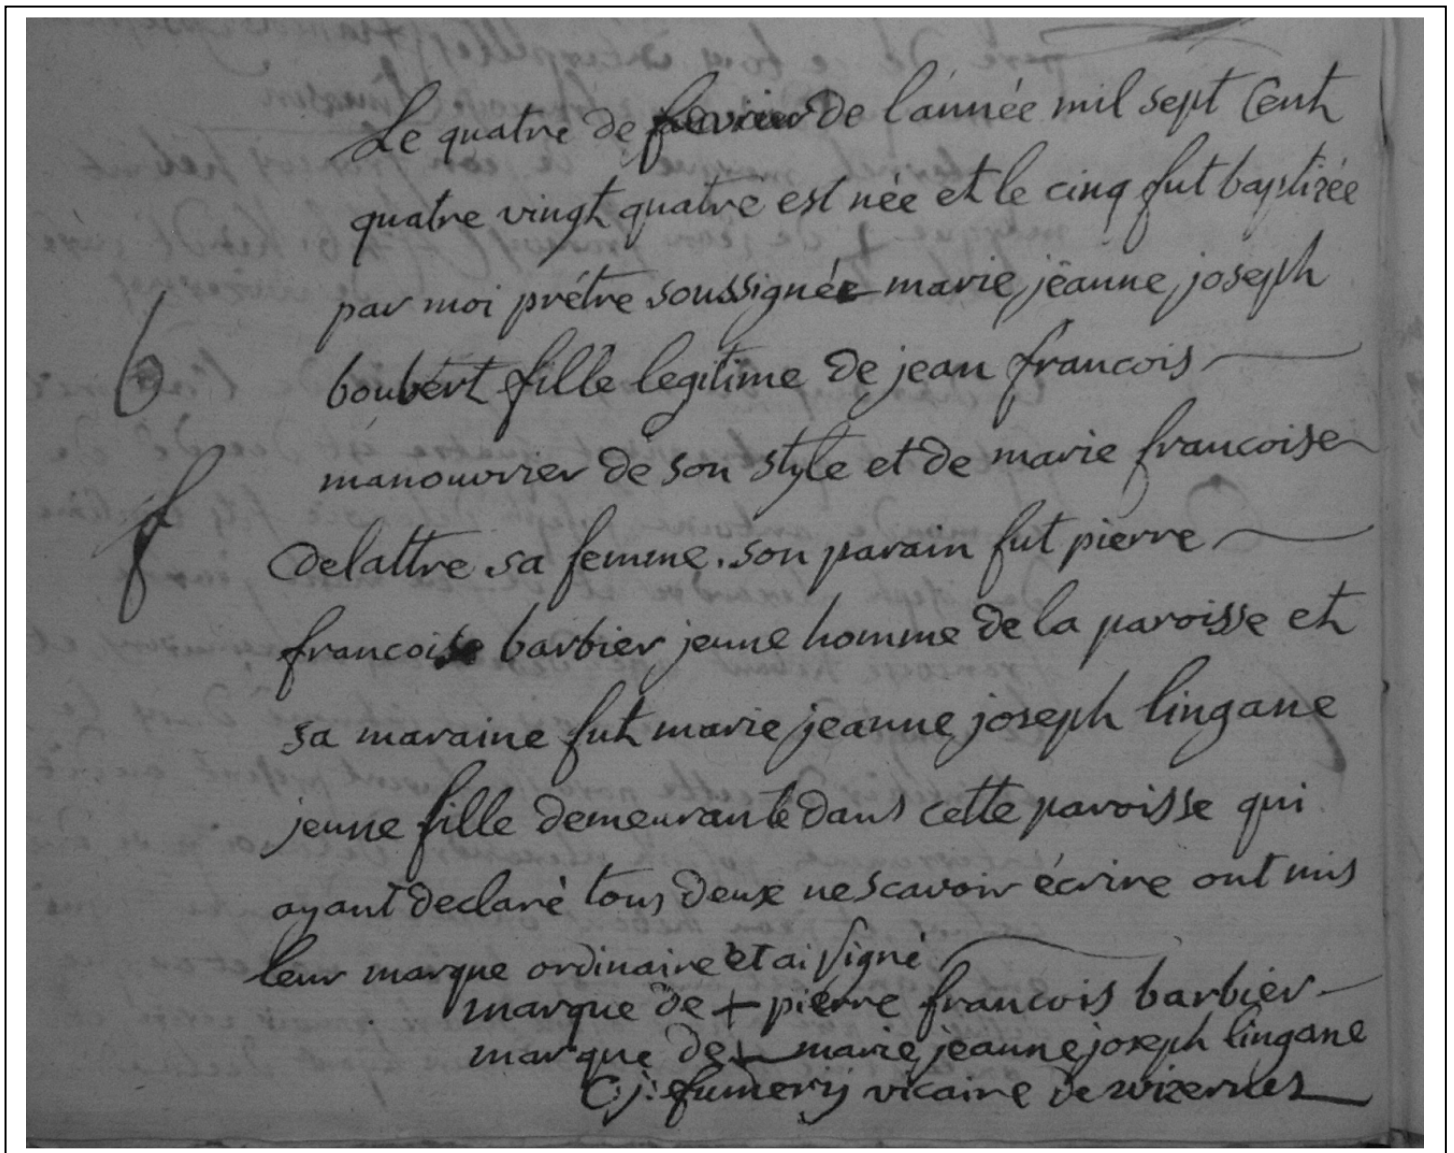 Le quatre de fevrier de l'année mil sept Cent
quatre vingt quatre est née et le cinq fut baptisée
par moi prétre soussignée marie jeanne joseph
boubert fille legitime de jean francois
B
manouvrier de son style et de marie francoise
f
delattre sa femme. son parain fut pierre
francois barbier jeune homme de la paroisse et
sa maraine fut marie jeanne joseph lingane
jeune fille demeurante dans cette paroisse qui
ayant declaré tous deux ne scavoir écrire ont mis
leur marque ordinaire et ai signé
marque de + pierre francois barbier
marque de + marie jeanne joseph lingane
C: j: fumery vicaire de wizernes